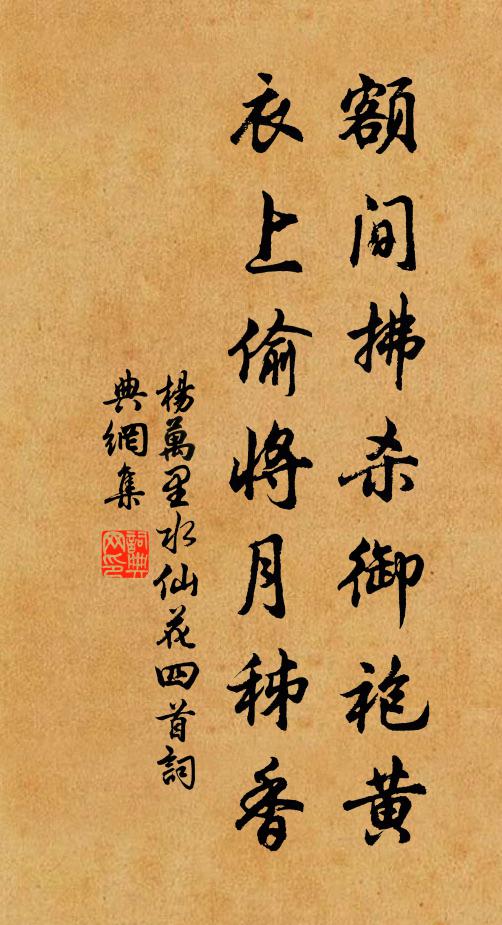 額間拂杀御袍黄
衣上偷将月秭香
楊萬里水仙花四首詞
典網集
詞典
网印